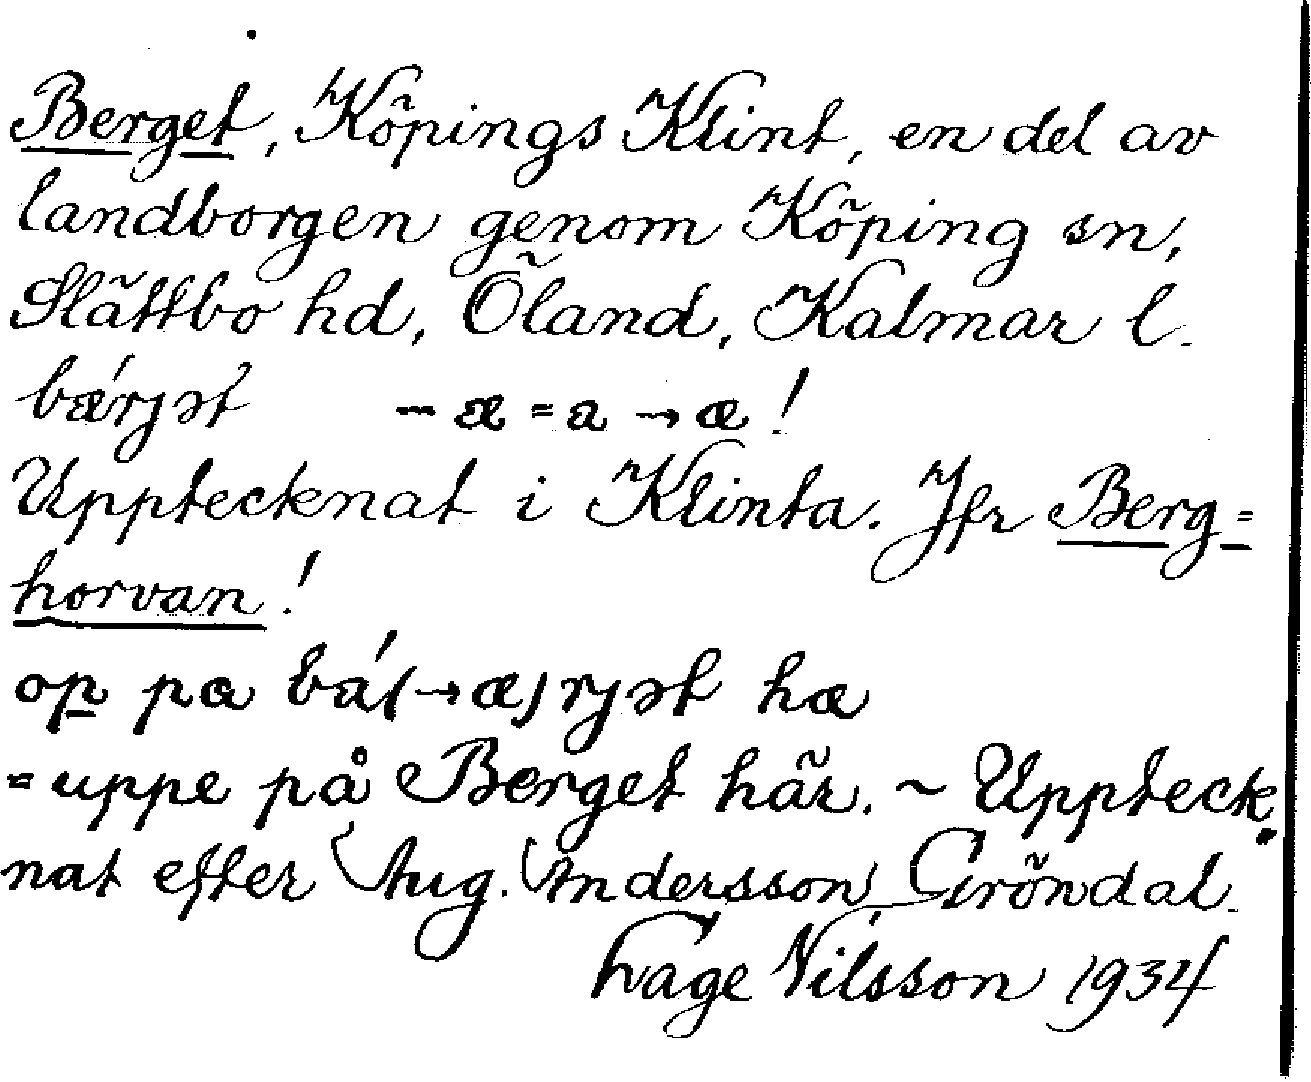 Berget, Köpings Klint, en del av
landborgen genom Köping sn,
Slättbo hd, Öland, Kalmar l.
bǽrjət - æ = a → æ!
Upptecknat i Klinta. Jfr Berg=
horvan!
op pa bá(→æ)rjət hæ
= uppe på Berget här. ~ Uppteck-
nat efter Aug. Andersson, Gröndal.
Åage Nilsson 1934